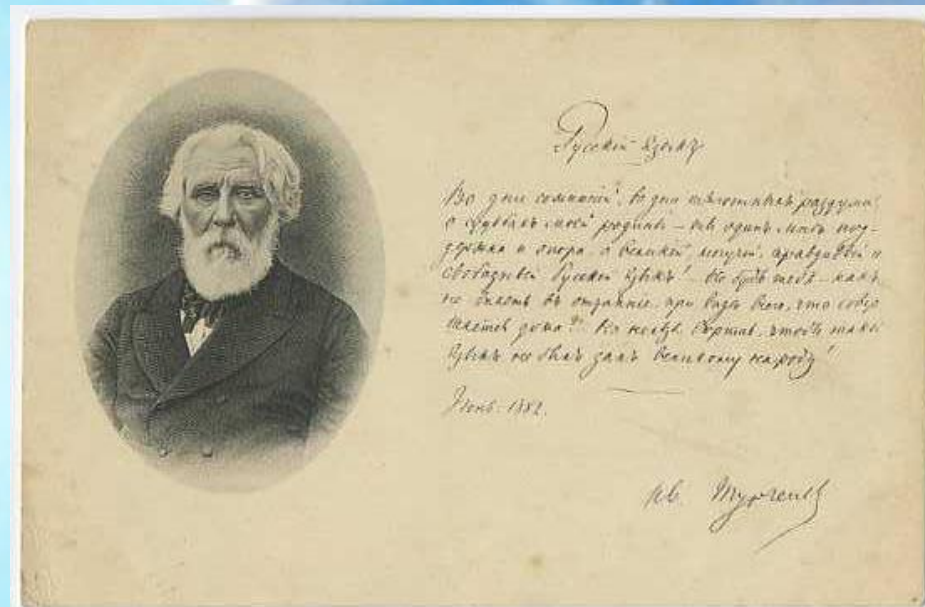 Русскій языкъ
Во дни сомнѣній, во дни тягостныхъ раздумій
о судьбахъ моей родины – ты одинъ мнѣ под-
держка и опора, о великій, могучій, правдивый и
свободный русскій языкъ! Не будь тебя – какъ
не впасть въ отчаяніе, при видѣ всего, что совер
шается дома? Но нельзя вѣрить, чтобъ такой
языкъ не былъ данъ великому народу!
Іюнь 1882.
Ив. Тургеневъ